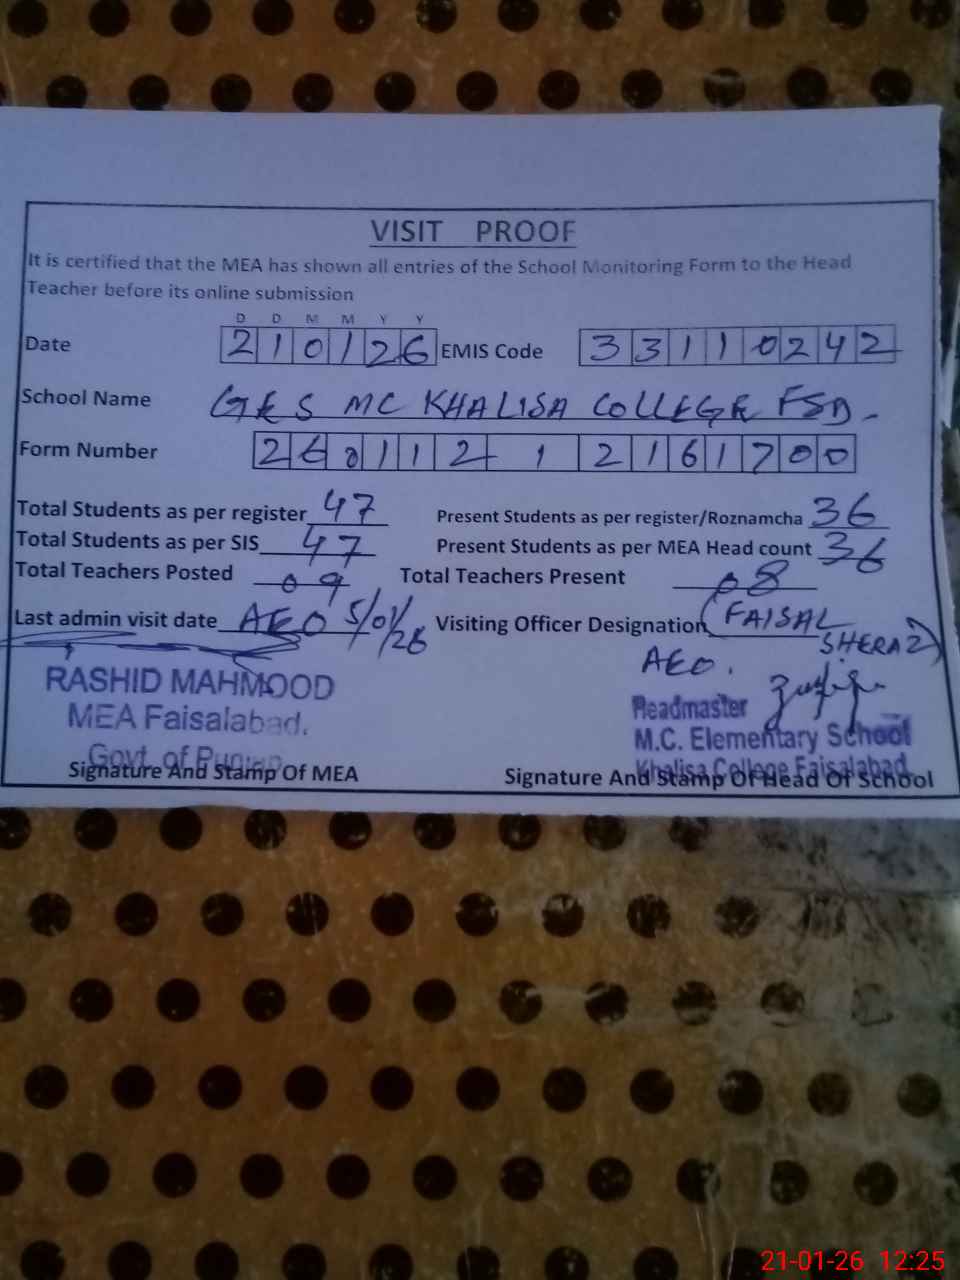 VISIT PROOF
It is certified that the MEA has shown all entries of the School Monitoring Form to the Head
Teacher before its online submission
D D M M Y Y
Date 210126 EMIS Code 33110242
School Name GES MC KHALISA COLLEGE FSD-
Form Number 260112 1 2161700
Total Students as per register 47 Present Students as per register/Roznamcha 36
Total Students as per SIS 47 Present Students as per MEA Head count 36
Total Teachers Posted 09 Total Teachers Present 08
Last admin visit date AEO 5/01/26 Visiting Officer Designation (FAISAL
SHERAZ)
AEO.
RASHID MAHMOOD
MEA Faisalabad.
Govt. of Punjab
Signature And Stamp Of MEA
Headmaster
M.C. Elementary School
Khalisa College Faisalabad
Signature And Stamp Of Head Of School
21-01-26 12:25